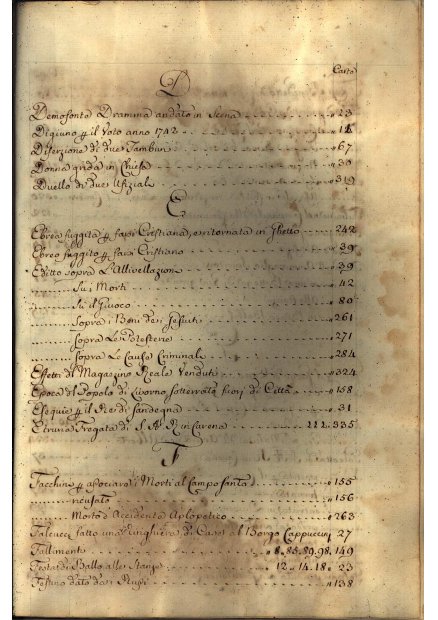 Carte
D
Demofonte Dramma andato in Scena 23
Digiuno p il Voto anno 1742 12
Diserzione di due Tamburi 67
Donna grida in Chiesa 30
Duello di due Ufiziali 319
E
Ebrea fuggita p farsi Cristiana, e ritornata in Ghetto 242
Ebreo fuggito p farsi Cristiano 39
Editto sopra L'Allivellazioni 39
Su i Morti 42
Su il Giuoco 80
Sopra i Beni dei Gesuiti 261
Sopra Le Foresterie 271
sopra Le Cause Criminali 284
Effetti di Magazzino Reale Venduti 324
Epoca del Popolo di Livorno sotterrato fuori di Città 158
Esequie p il Re di Sardegna 31
Etruria Fregata di S. A. R. in Carena 222. 335
F
Facchini p associare i Morti al Campo Santo 155
ricusato 156
Morto d'Accidente Apopletico 263
Falcucci fatto una Ringhiera di Case al Borgo Cappuccini 27
Fallimenti 8. 85. 89. 98. 149
Festa di Ballo alle Stanze 12. 14. 18. 23
Festino dato dai 138